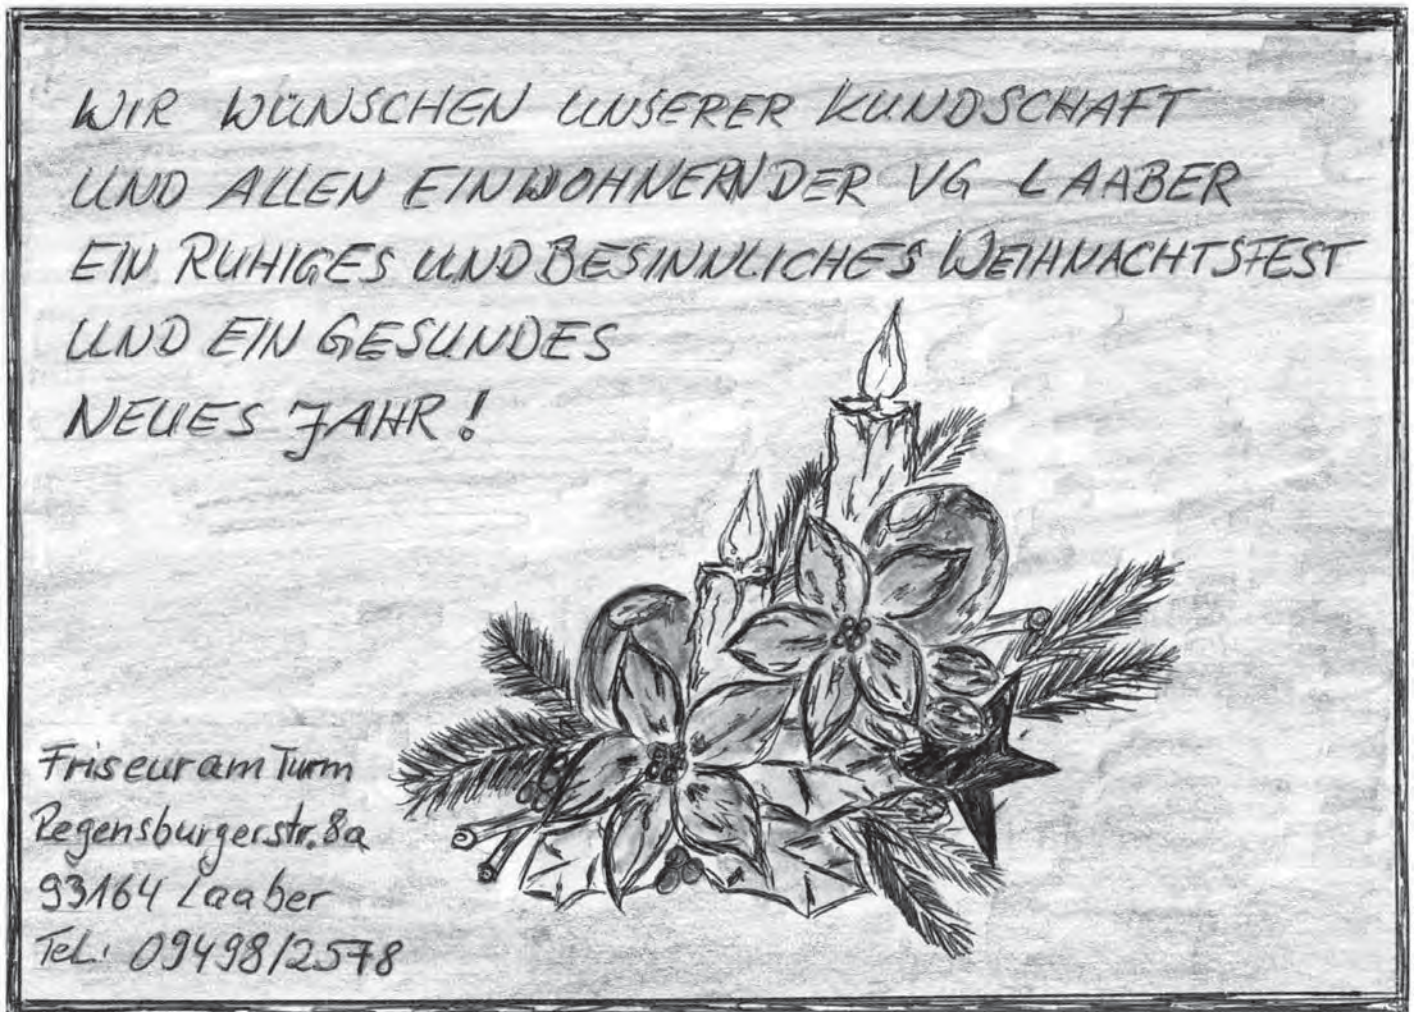 WIR WÜNSCHEN UNSERER KUNDSCHAFT
UND ALLEN EINWOHNERN DER VG LAABER
EIN RUHIGES UND BESINNLICHES WEIHNACHTSFEST
UND EIN GESUNDES
NEUES JAHR!
Friseur am Turm
Regensburgerstr. 8a
93164 Laaber
Tel.: 09498/2578